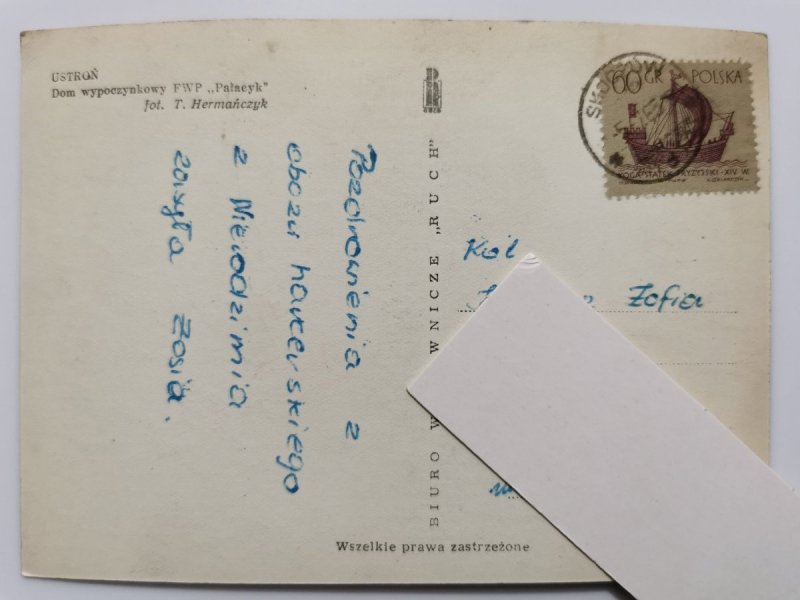 USTROŃ
Dom wypoczynkowy FWP „Pałacyk"
fot. T. Hermańczyk
Pozdrowienia z
obozu harcerskiego
z Nierodzimia
Zosia.
BIURO WYDAWNICZE „RUCH"
60 GR POLSKA
KOGA STATEK FRYZYJSKI-XIV W.
Kol
Zofia
Wszelkie prawa zastrzeżone